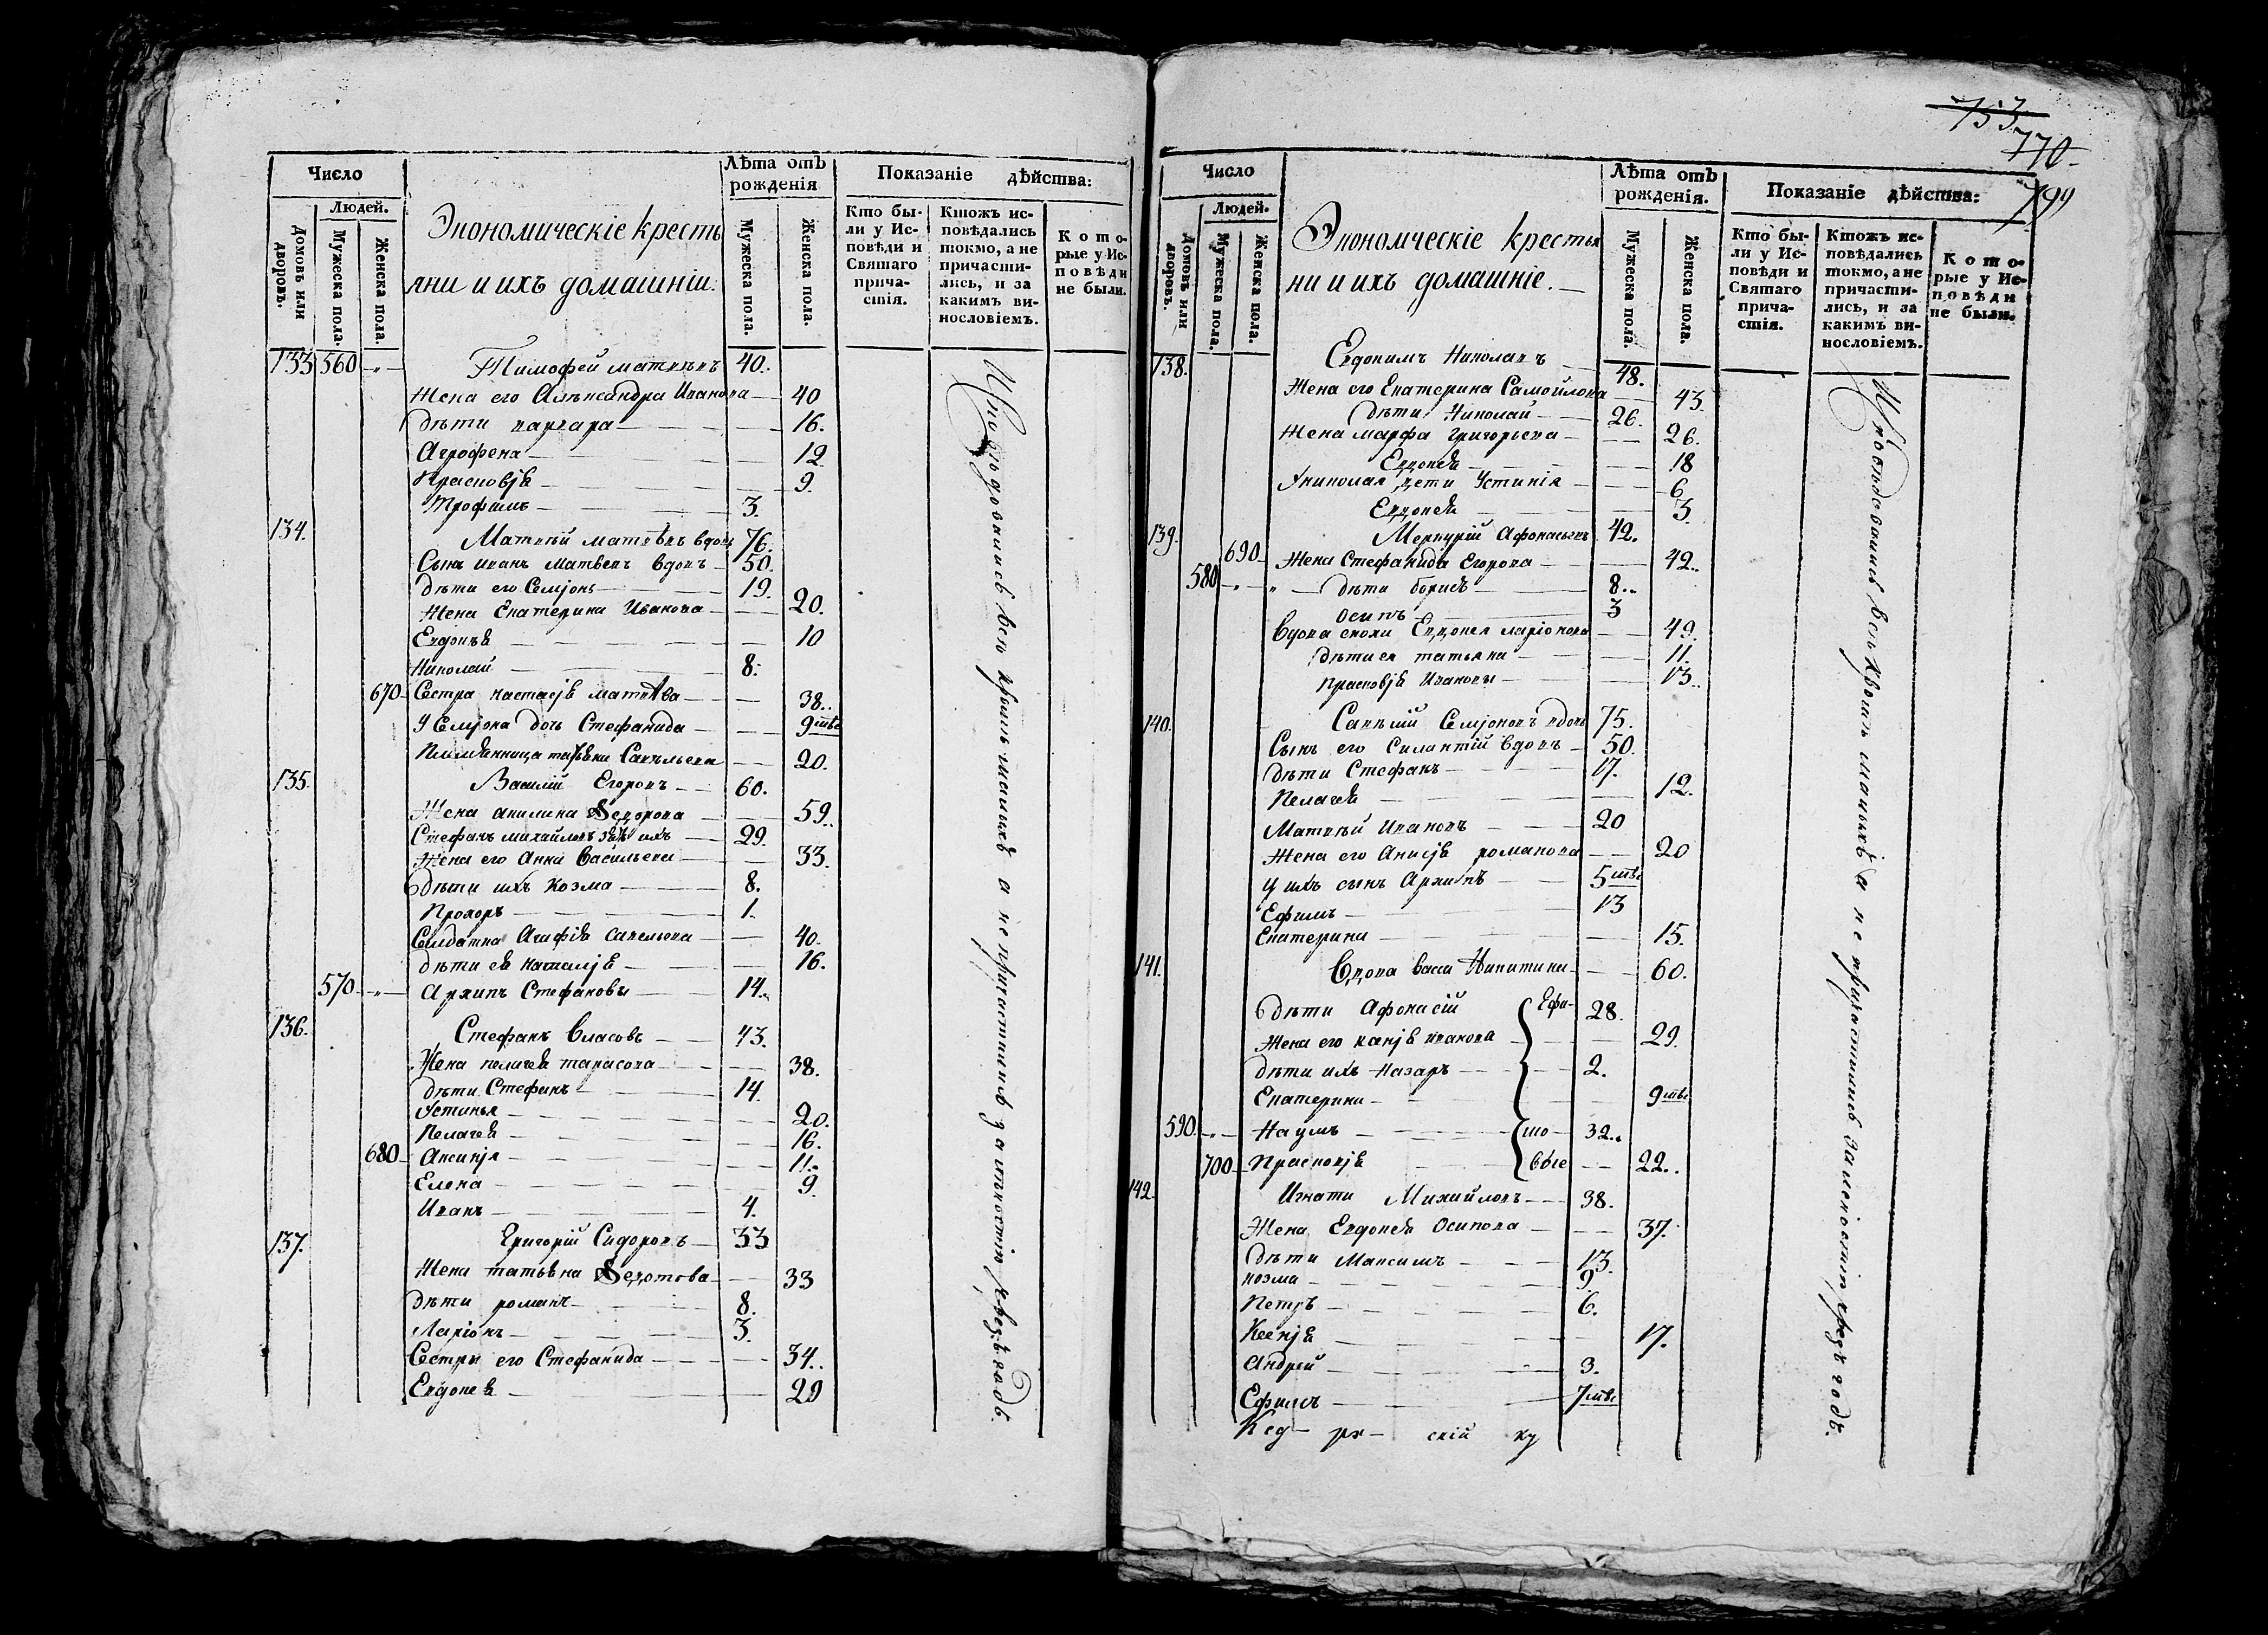 Число
Людей.
Домовъ или дворовъ.
Мужеска пола.
Женска пола.
Экономическіе кресть
яни и ихъ домашніи.
Лѣта отъ рожденія
Мужеска пола.
Женска пола.
Показаніе дѣйства:
Кто бы-
ли у Ис-
повѣди и
Святаго
прича-
стія.
Ктожъ ис-
повѣдались
токмо, а не
причасти-
лись, и за
какимъ ви-
нословіемъ.
Кото-
рые у Ис-
повѣди
не были.
133 560 Тимофей матвѣевъ 40.
Жена его Александра Иванова 40
дѣти варвара 16.
Агрофена 12
Прасковія 9.
Трофимъ 3.
134. Матвѣй матвѣевъ вдовъ 76.
Сынъ иванъ Матвеевъ вдовъ 50.
дѣти его Семіонъ 19.
Жена Екатерина Иванова 20.
Евдокѣя 10
Николай 8.
670 Сестра настасія матвѣва 38.
У Семіона дочь Стефанида 9 тиве
Племянница татьяна Савельева 20.
135. Василій Егоровъ 60.
Жена акилина Ѳедорова 59.
Стефанъ михайловъ зять ихъ 29.
Жена его Анна Васильева 33.
дѣти ихъ козма 8.
Прохоръ 1.
Солдатка Агафія савельева 40.
дѣти ея наталія 16.
570 Архипъ Стефановы 14.
136. Стефанъ Власовъ 43.
Жена пелагея тарасова 38.
дѣти Стефанъ 14.
Устинья 20.
Пелагея 16.
680 Аксинія 11.
Елена 9.
Иванъ 4.
137. Григорій Сидоровъ 33
Жена татьяна Ѳедотова 33
дѣти романъ 8.
Ларіонъ 3.
Сестры его Стефанида 34.
Евдокея 29
Исповѣдовались всѣ кромѣ малыхъ а не причастились за лѣностію предь годъ.
753
770
799
Число
Людей.
Домовъ или дворовъ.
Мужеска пола.
Женска пола.
Экономическіе крестья
ни и ихъ домашніе.
Лѣта отъ рожденія.
Мужеска пола.
Женска пола.
Показаніе дѣйства:
Кто бы-
ли у Ис-
повѣди и
Святаго
прича-
стія.
Ктожъ ис-
повѣдались
токмо, а не
причасти-
лись, и за
какимъ ви-
нословіемъ.
Кото-
рые у Ис-
повѣди
не были.
138. Евдокимъ Николаевъ 48.
Жена его Екатерина Самойлова 43.
дѣти Николай 26.
Жена марфа григорьева 26.
Евдокея 18
У николая дети Устинія 6
Евдокея 3.
139. Меркурій Афонасьевъ 42.
690 Жена Стефанида Егорова 42.
580 дѣти борисъ 8.
осипъ 3
Вдова сноха Евдокея ларіонова 49.
дѣти ея татьяна 11.
прасковія Ивановы 13.
140. Савелій Семіоновъ вдовъ 75.
Сынъ его Силантій вдовъ 50.
дѣти Стефанъ 17.
Пелагея 12.
Матвѣй Ивановъ 20
Жена его Анисія романова 20
у ихъ сынъ Архипъ 5 тиве
Ефимъ 13
Екатерина 15.
141. Вдова васса Никитина 60.
дѣти Афонасій Ефи- 28.
Жена его ксенія иванова 29.
дѣти ихъ Назаръ 2.
Екатерина 9 тиве
590. Наумъ мо- 32.
700 Прасковія вые 22.
142. Игнати Михайловъ 38.
Жена Евдокея Осипова 37.
дѣти Максимъ 13.
козма 9.
Петръ 6.
Ксенія 17.
Андрей 3.
Ефимъ 7 тиве
скій ку
Исповѣдовались всѣ кромѣ малыхъ а не причастились за леностію предь годъ.